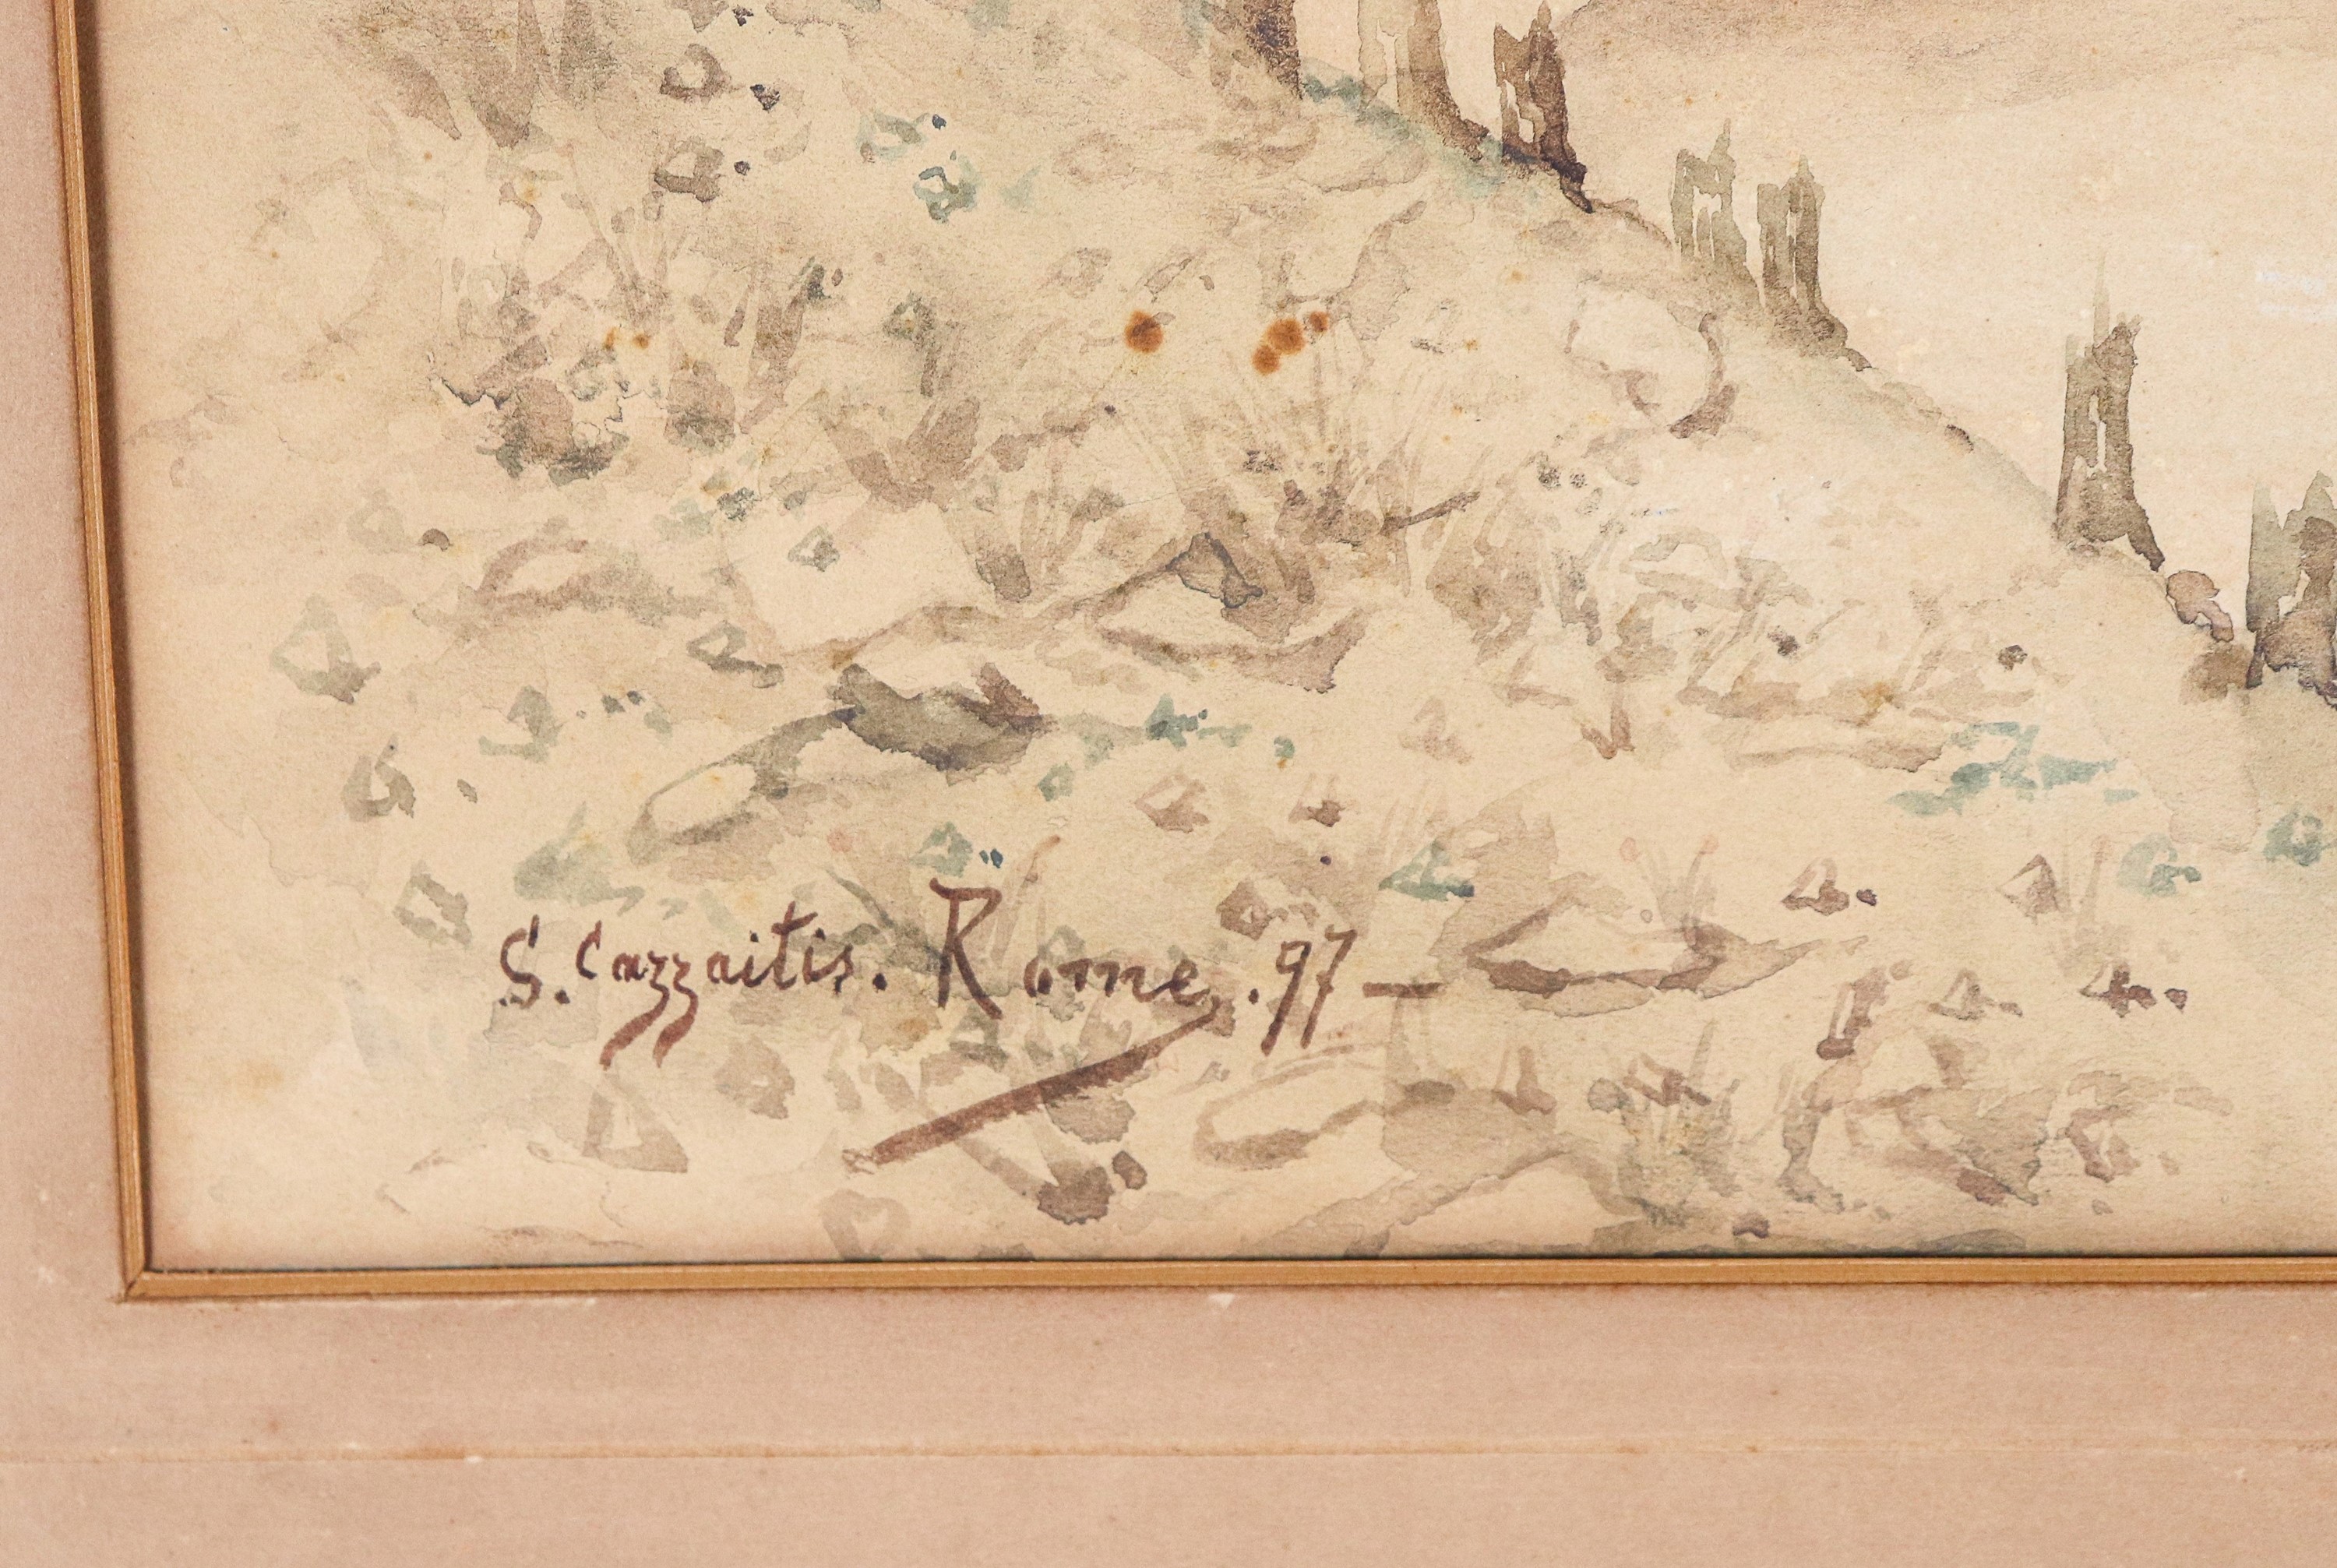 S. Cazzaitis. Rome. 97